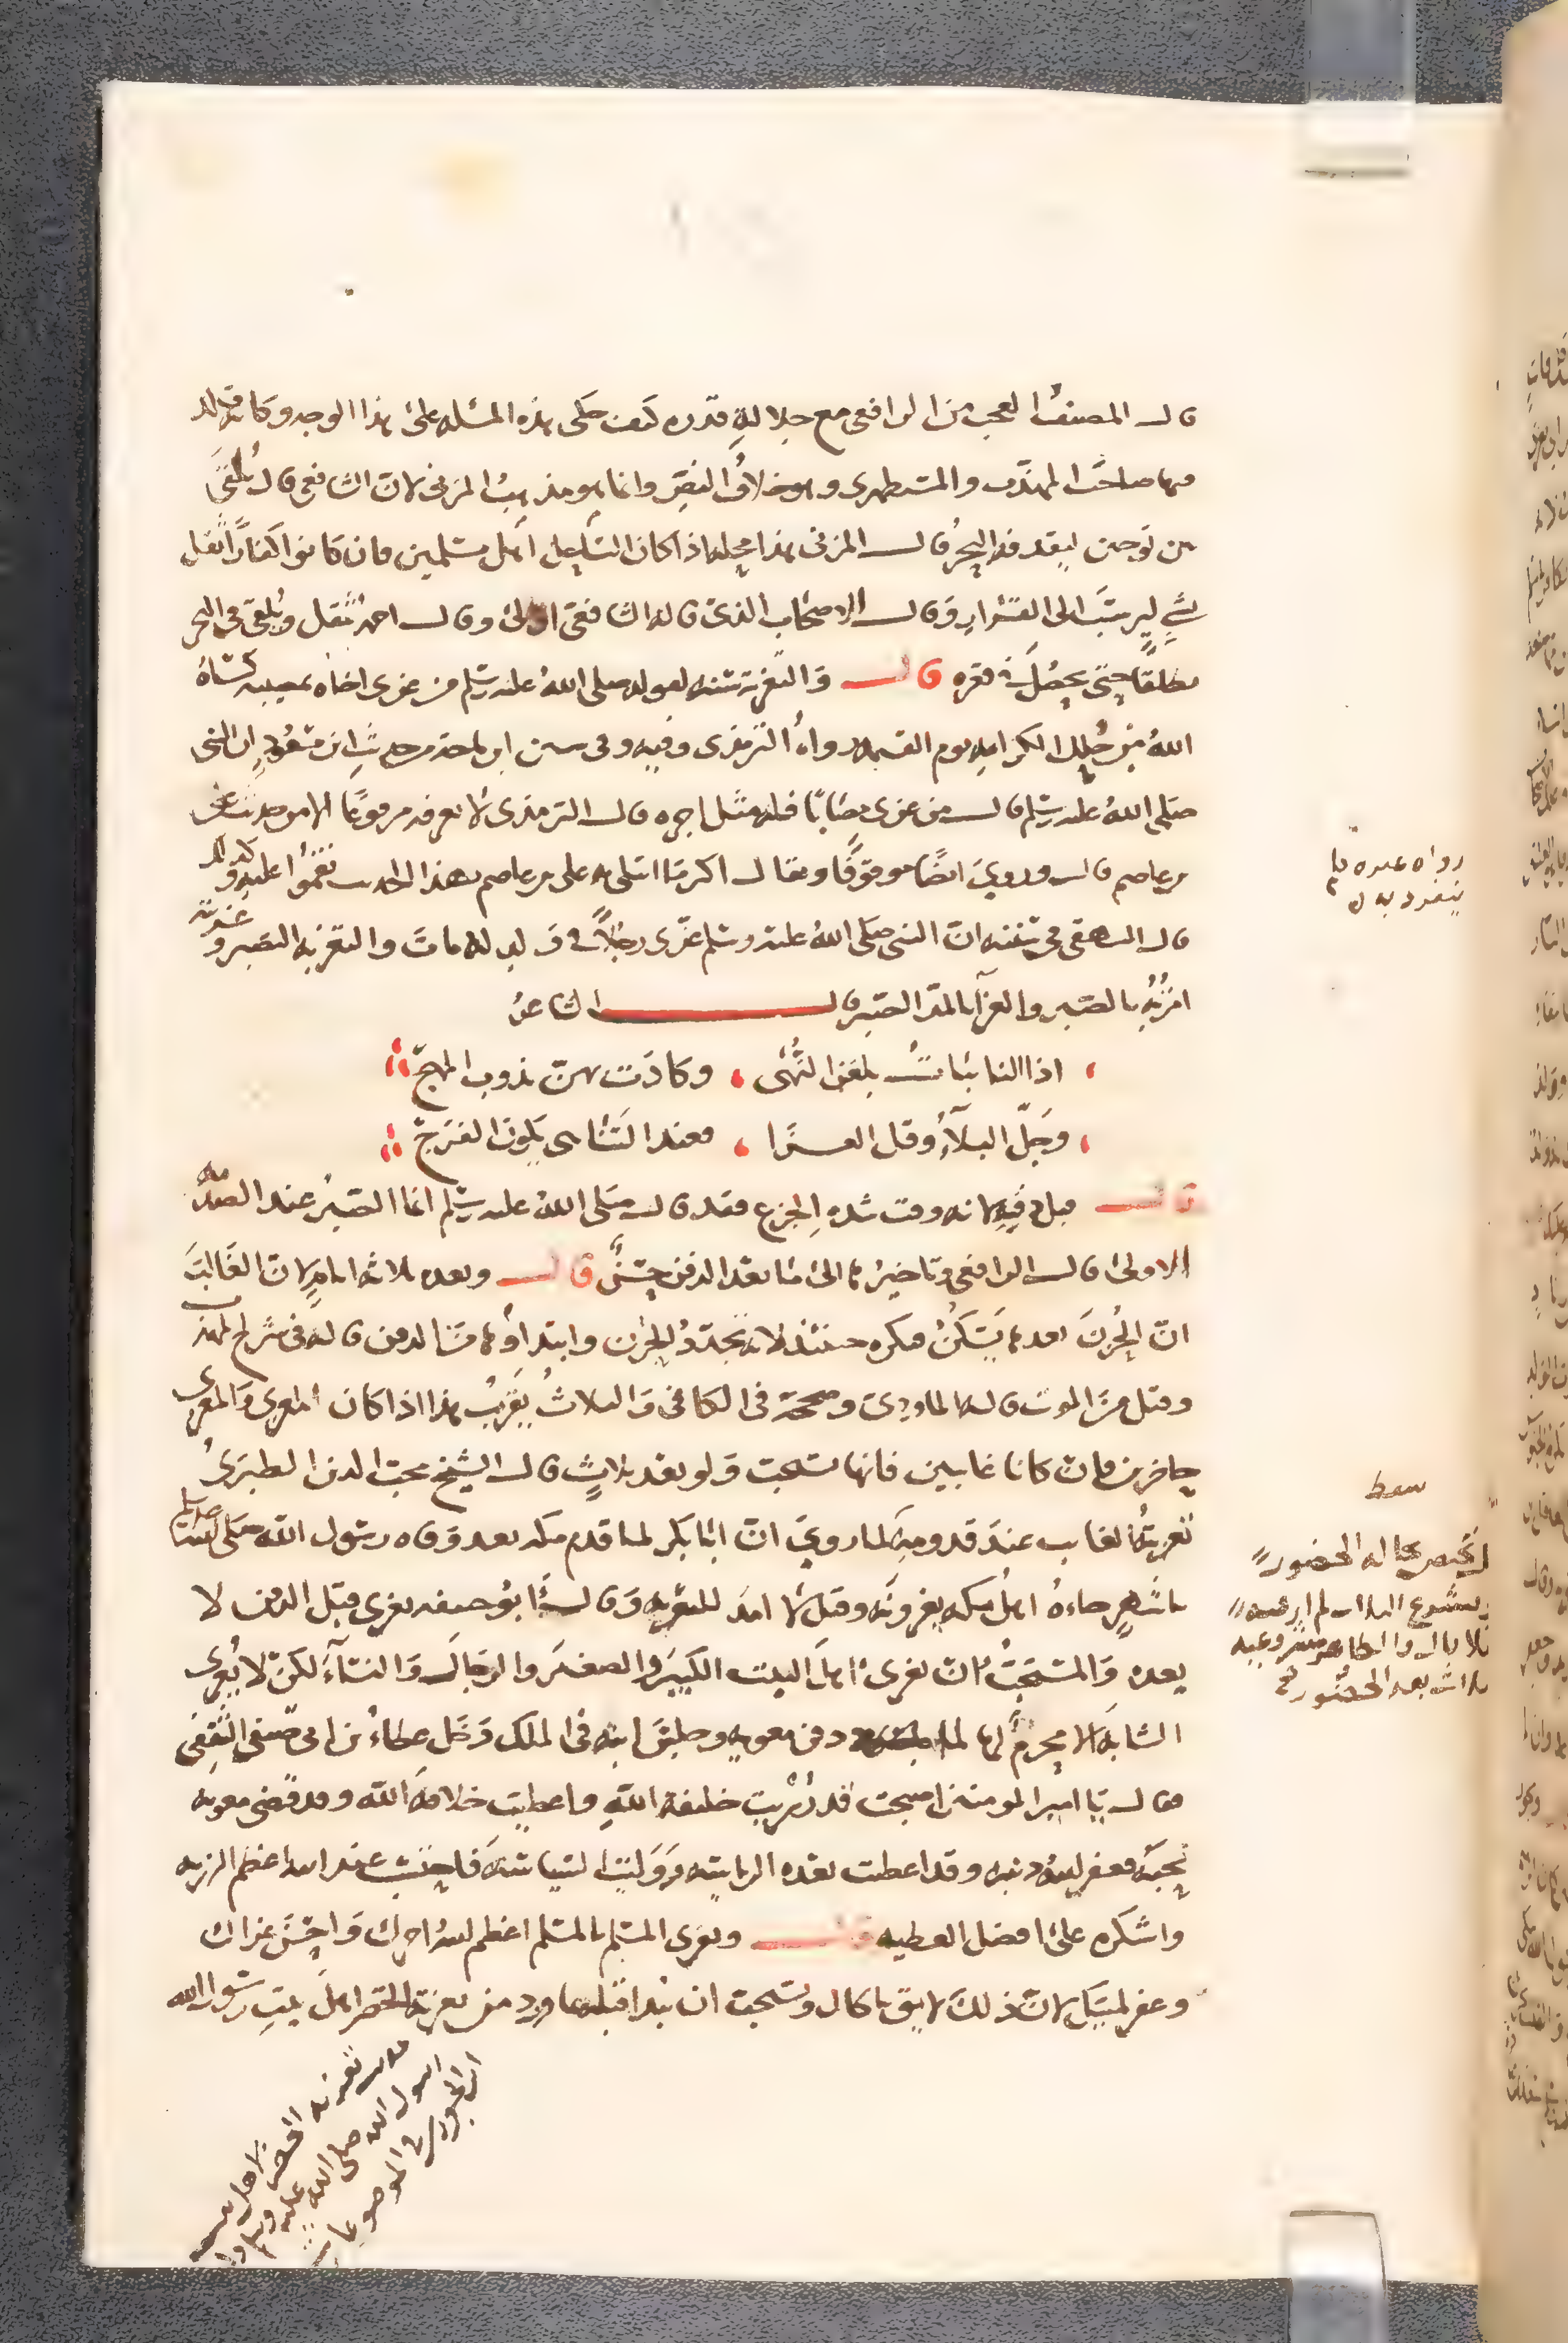 قال المصنف العجب من الرافعي مع جلالة قدره كيف حكى هذه المسئله على هذا الوجه وكانه قلد
فيها صاحبي المهذب والمستظهري وهو خلاف النص وانما هو مذهب المزني لان الشافعي قال يلقى
بين لوحين ليقذفه البحر قال المزني هذا محله اذا كان الساحل اهل مسلمين فان كانوا كفارا ثقل
بشي ليرسب الى القرار وقال الاصحاب الذي قاله الشافعي اولى وقال احمد يثقل ويلقى في البحر
مطلقا حتى يحصل في قعره قال والتعزية سنه لقوله صلى الله عليه وسلم من عزى اخاه بمصيبه كساه
الله من حلل الكرامه يوم القيمه رواه الترمذي وفيه وفي سنن ابن ماجه من حديث ابن مسعود ان النبي
صلى الله عليه وسلم قال من عزى مصابا فله مثل اجره قال الترمذي لا نعرفه مرفوعا الا من حديث علي
بن عاصم قال وروي ايضا موقوفا ويقال اكثر ما ابتلي به علي بن عاصم بهذا الحديث نقموا عليه وكذلك
قال البيهقي في سننه ان النبي صلى الله عليه وسلم عزى رجلا في ولد له مات والتعزيه التصبر وعزيته
امرته بالصبر والعزآ بالمد الصبر قال الشاعر
اذا النائبات بلغن النهى ، وكادت لهن تذوب المهج
وجل البلآء وقل العزا ، فعند التناهي يكون الفرج
قال قبل دفنه لانه وقت شدة الجزع فقد قال صلى الله عليه وسلم انما الصبر عند الصدمه
الاولى قال الرافعي وتاخيرها الى ما بعد الدفن حسن قال وبعده ثلاثه ايام لان الغالب
ان الحزن بعدها يسكن فيكره حينئذ لانه تجدد للحزن وابتداؤها من الدفن قاله في شرح المهذب
وقيل من الموت قاله الماوردي وصححه في الكافي والثلاث تقريب هذا اذا كان المعزي والمعزى
حاضرين فان كانا غايبين فانها تستحب ولو بعد ثلاث قال الشيخ محب الدين الطبري
تعزية الغايب عند قدومه لما روي ان ابا بكر لما قدم مكه بعد وفاه رسول الله صلى الله عليه وسلم
باشهر جاءه اهل مكه يعزونه وقيل لا امد للتعزيه وقال ابو حنيفه يعزى قبل الدفن لا
بعده والمستحب ان يعزى اهل البيت الكبير والصغير والرجال والنسآء لكن لا يعزى
الشابه الا محرم لها لما دفن معويه وخلف ابنه في الملك دخل عطاء بن ابي صيفي الثقفي
فقال يا امير المومنين اصبحت قد رزيت خليفة الله واعطيت خلافه الله وقد قضى معويه
نحبه فغفر الله ذنبه وقد اعطيت بعده الرياسه ووليت السياسه فاحتسب عند الله اعظم الرزيه
واشكره على افضل العطيه قال ويعزى المسلم بالمسلم اعظم الله اجرك واحسن عزاك
وغفر لميتك لان ذلك لايق بالحال ويستحب ان يبدا قبله بما ورد من تعزية الخضر اهل بيت رسول الله
رواه غيره فلم
ينفرد به
سقط
بلا مال والظاهر مشروعيه
ثلاث بعد الحضور
تعزيه الخضر لاهل بيت
رسول الله صلى الله عليه وسلم
ابن الجوزي في الموضوعات